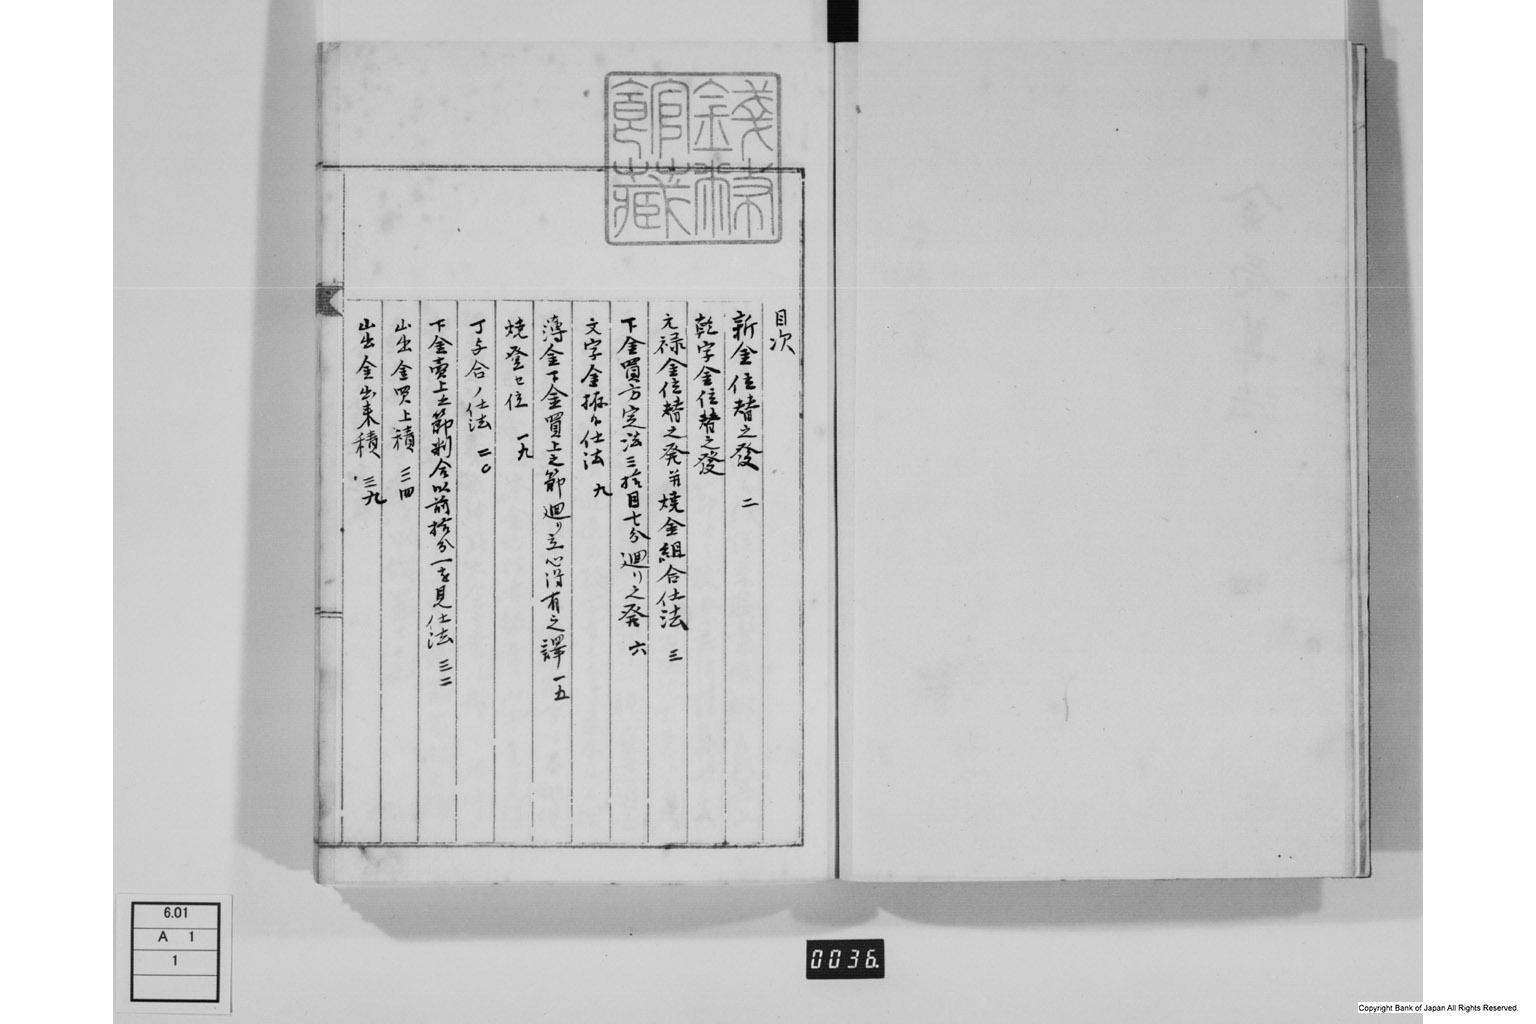 錢幣館藏
目次
新金位替之發 二
乾字金位替之發
元禄金位替之発并焼金組合仕法 三
下金買方定法三拾目七分廻リ之発 六
文字金拵ヘ仕法 九
薄金下金買上之節廻リ立心得有之譯 一五
焼登セ位 一九
丁与合ノ仕法 二〇
下金賣上之節判合以前拾分一を見仕法 三二
山出金買上積 三四
山出金出来積 三九
6.01
A 1
1
0036.
Copyright Bank of Japan All Rights Reserved.